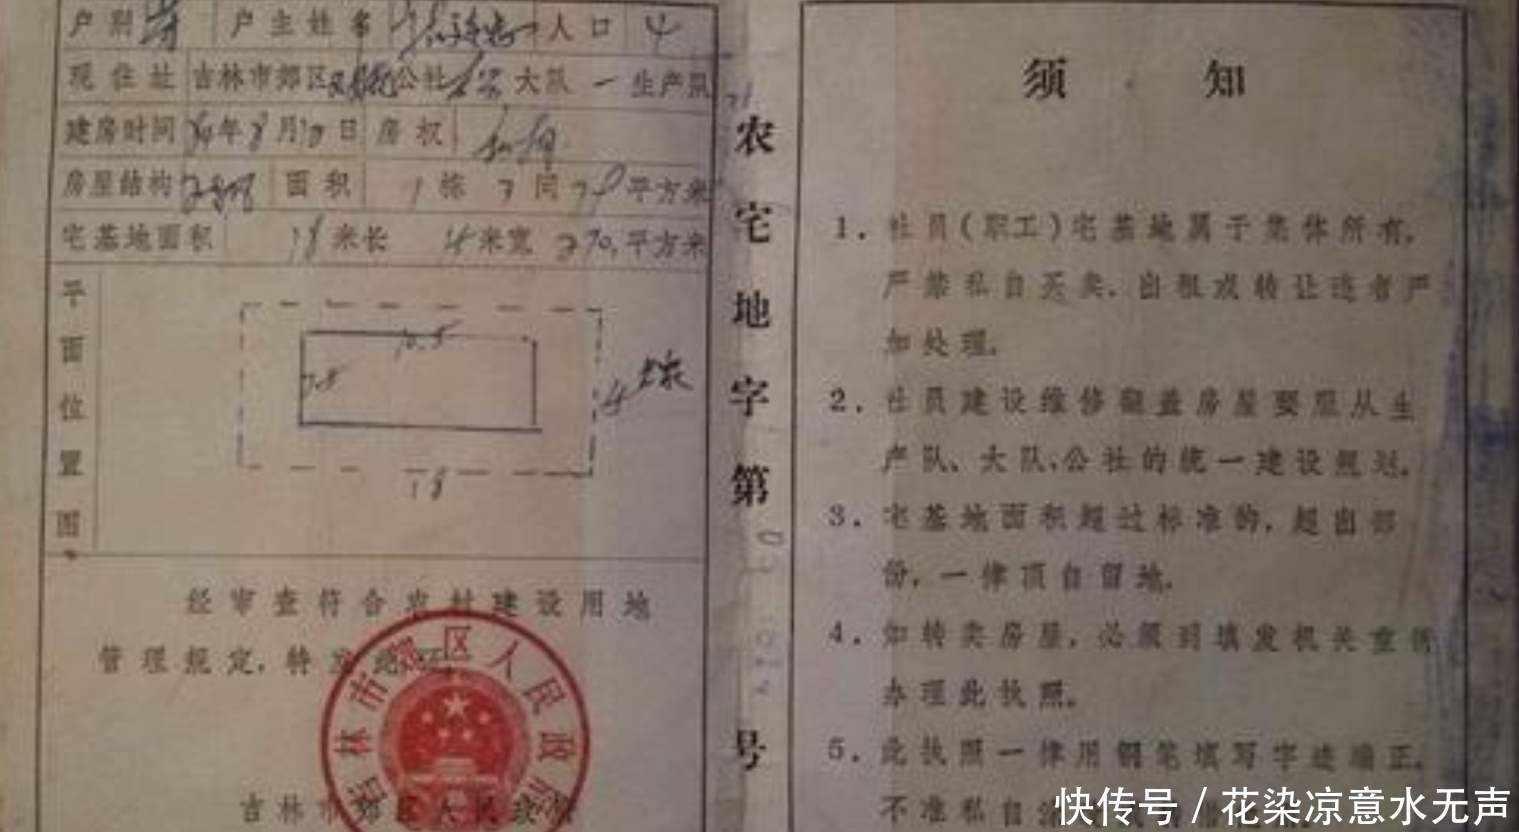 户别 户主姓名 人口 4
现住址 吉林市郊区 公社 大队 一 生产队
建房时间 年8月10日 房权
房屋结构 面积 1栋 3间 平方米
宅基地面积 18米长 米宽 270.平方米
平面位置图
10.5
7.5
18
经审查符合农村建设用地
管理规定,特发
吉林市郊区人民政府
吉林市郊区人民政府
农宅地字第
号
须知
1. 社员(职工)宅基地属于集体所有,
严禁私自买卖、出租或转让违者严
加处理.
2. 社员建设维修翻盖房屋要服从生
产队、大队、公社的统一建设规划.
3. 宅基地面积超过标准的,超出部
份,一律顶自留地.
4. 如转卖房屋,必须到填发机关重新
办理此执照.
5. 此执照一律用钢笔填写字迹端正.
不准私自
快传号 / 花染凉意水无声